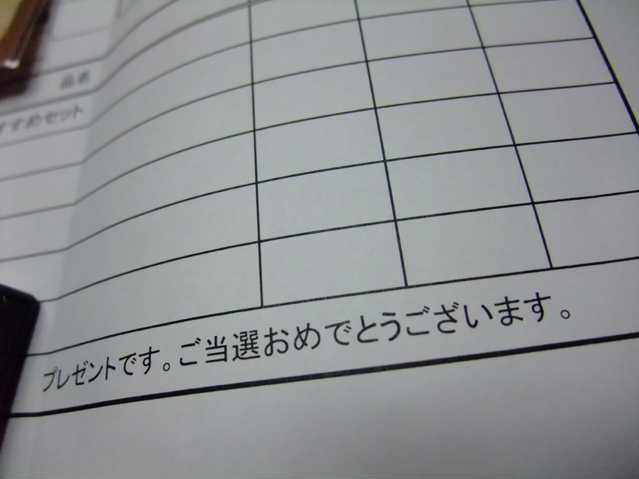 品名
すすめセット
プレゼントです。ご当選おめでとうございます。